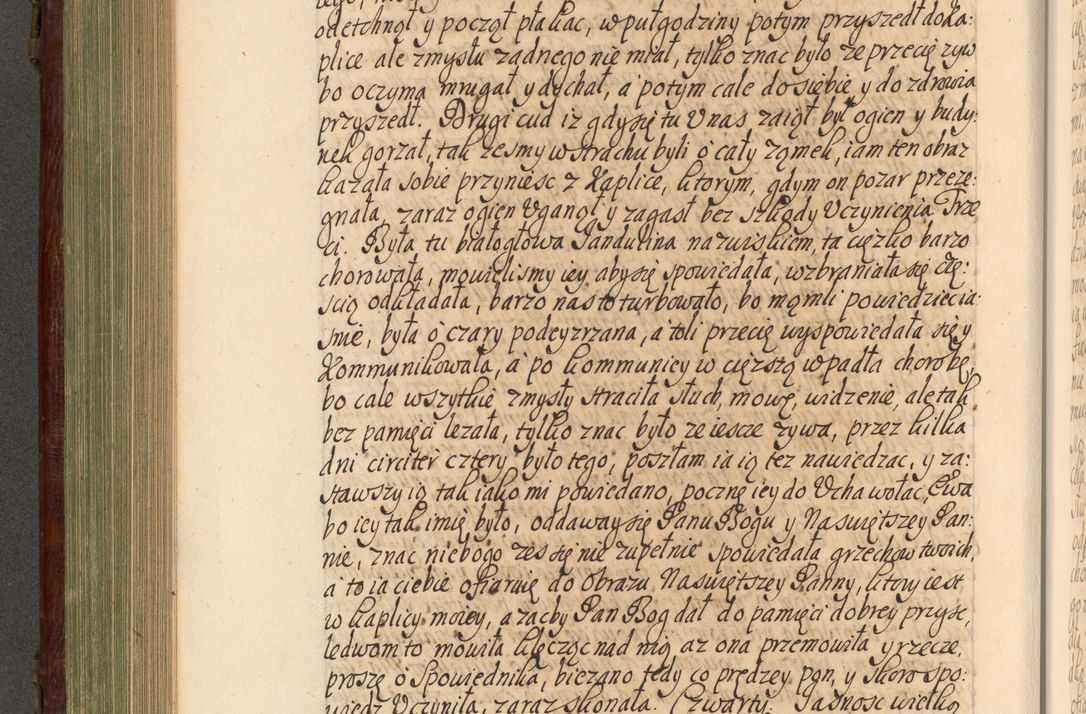 odetchnął y począł płakac, w pułgodziny potym przyszedł do Ka:
plice ale zmysłu zadnego nie miał, tylko znac było ze przecię zyw
bo oczyma mrugał y dychał, a potym cale do siebie y do zdrowia
przyszedł. Drugi cud iz gdy się tu U nas zaiął był ogien y budy:
nek gorzał, tak zesmy w strachu byli o cały zamek, iam ten obraz
kazała sobie przyniesc z Kaplice, ktorym, gdym on pozar przeze:
gnała, zaraz ogien Ugangł y zagasł bez szkody Uczynienia. Trze
ci. Była tu białogłowa Pandulina nazwiskiem, ta cięzko barzo
chorowała, mowielismy iey aby się spowiedała, wzbraniała się czę:
scią odkładała, barzo nas to turbowało, bo mąmli powiedziec ia:
snie, była o czary podeyzrzana, a toli przecię wyspowiedała się y
Kommunikowała, a po kommunicy w cięzszą wpadła chorobę,
bo cale wszytkie zmysły straciła słuch, mowę, widzenie, ale tak
bez pamięci lezała, tylko znac było ze iescze zywa, przez kilka
dni circiter cztery było tego, poszłam ia ią tez nawiedzac, y za:
stawszy ią tak iako mi powiedano, pocznę iey do Ucha wołac, Ewa
bo iey tak imię było, oddaway się Panu Bogu y Naswiętszey Pan:
nie, znac niebogo zes się nie zupełnie spowiedała grzechow twoich,
a to ia ciebie ofiaruię do obrazu Naswiętszey Panny, ktory iest
w kaplicy moiey, a zacby Pan Bog dał do pamięci dobrey przysc,
ledwom to mowiła klęcząc nad nią, az ona przemowiła y rzecze,
proszę o Spowiednika, biezano tedy co prędzey pon, y skoro spo:
wiedz Uczyniła, zaraz skonała. Czwarty. Jasnosc wielką